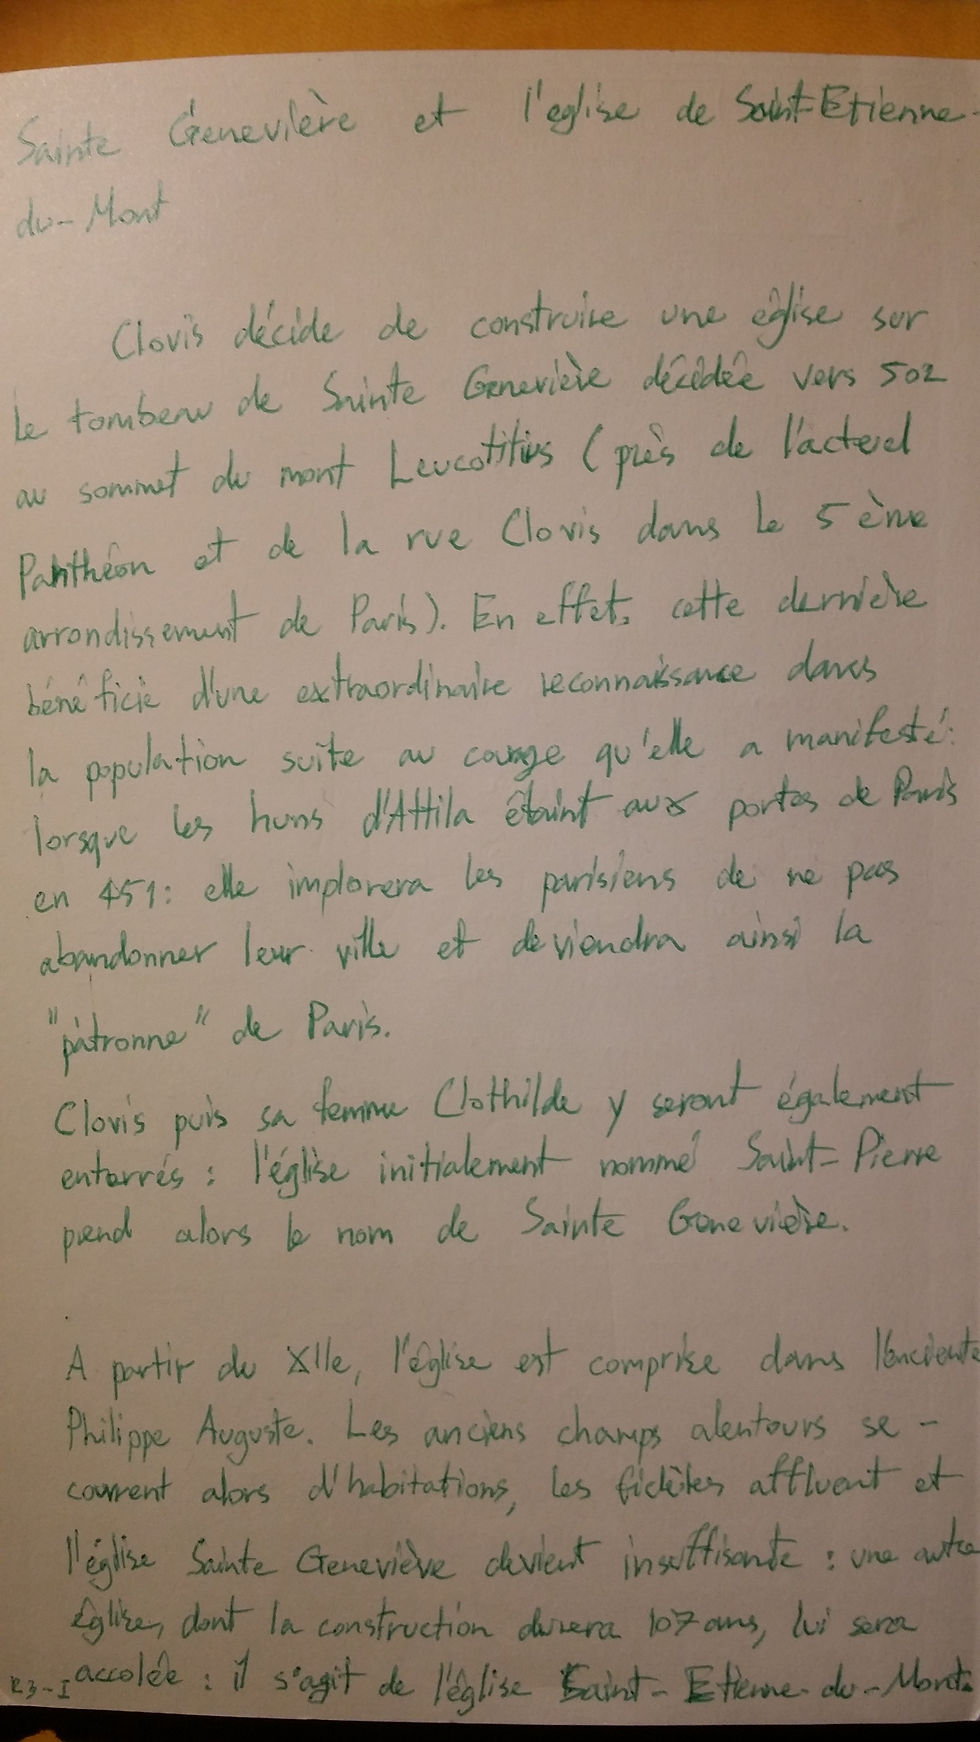 Sainte Geneviève et l'eglise de Saint-Etienne-
du-Mont
Clovis décide de construire une église sur
le tombeau de Sainte Geneviève décédée vers 502
au sommet du mont Leucotitius (près de l'acteuel
Panthéon et de la rue Clovis dans le 5 ème
arrondissement de Paris). En effet, cette dernière
bénéficie d'une extraordinaire reconnaissance dans
la population suite au courage qu'elle a manifesté:
lorsque les huns d'Attila étaint aux portes de Paris
en 451: elle implorera les parisiens de ne pas
abandonner leur ville et deviendra ainsi la
"patronne" de Paris.
Clovis puis sa femme Clothilde y seront également
enterrés : l'église initialement nommé Saint-Pierre
prend alors le nom de Sainte Geneviève.
A partir du XIIe, l'église est comprise dans l'enceinte
Philippe Auguste. Les anciens champs alentours se -
couvrent alors d'habitations, les fidèles affluent et
l'église Sainte Geneviève devient insuffisante : une autre
église, dont la construction durera 107 ans, lui sera
accolée : il s'agit de l'église Saint-Etienne-du-Mont.
R3-I